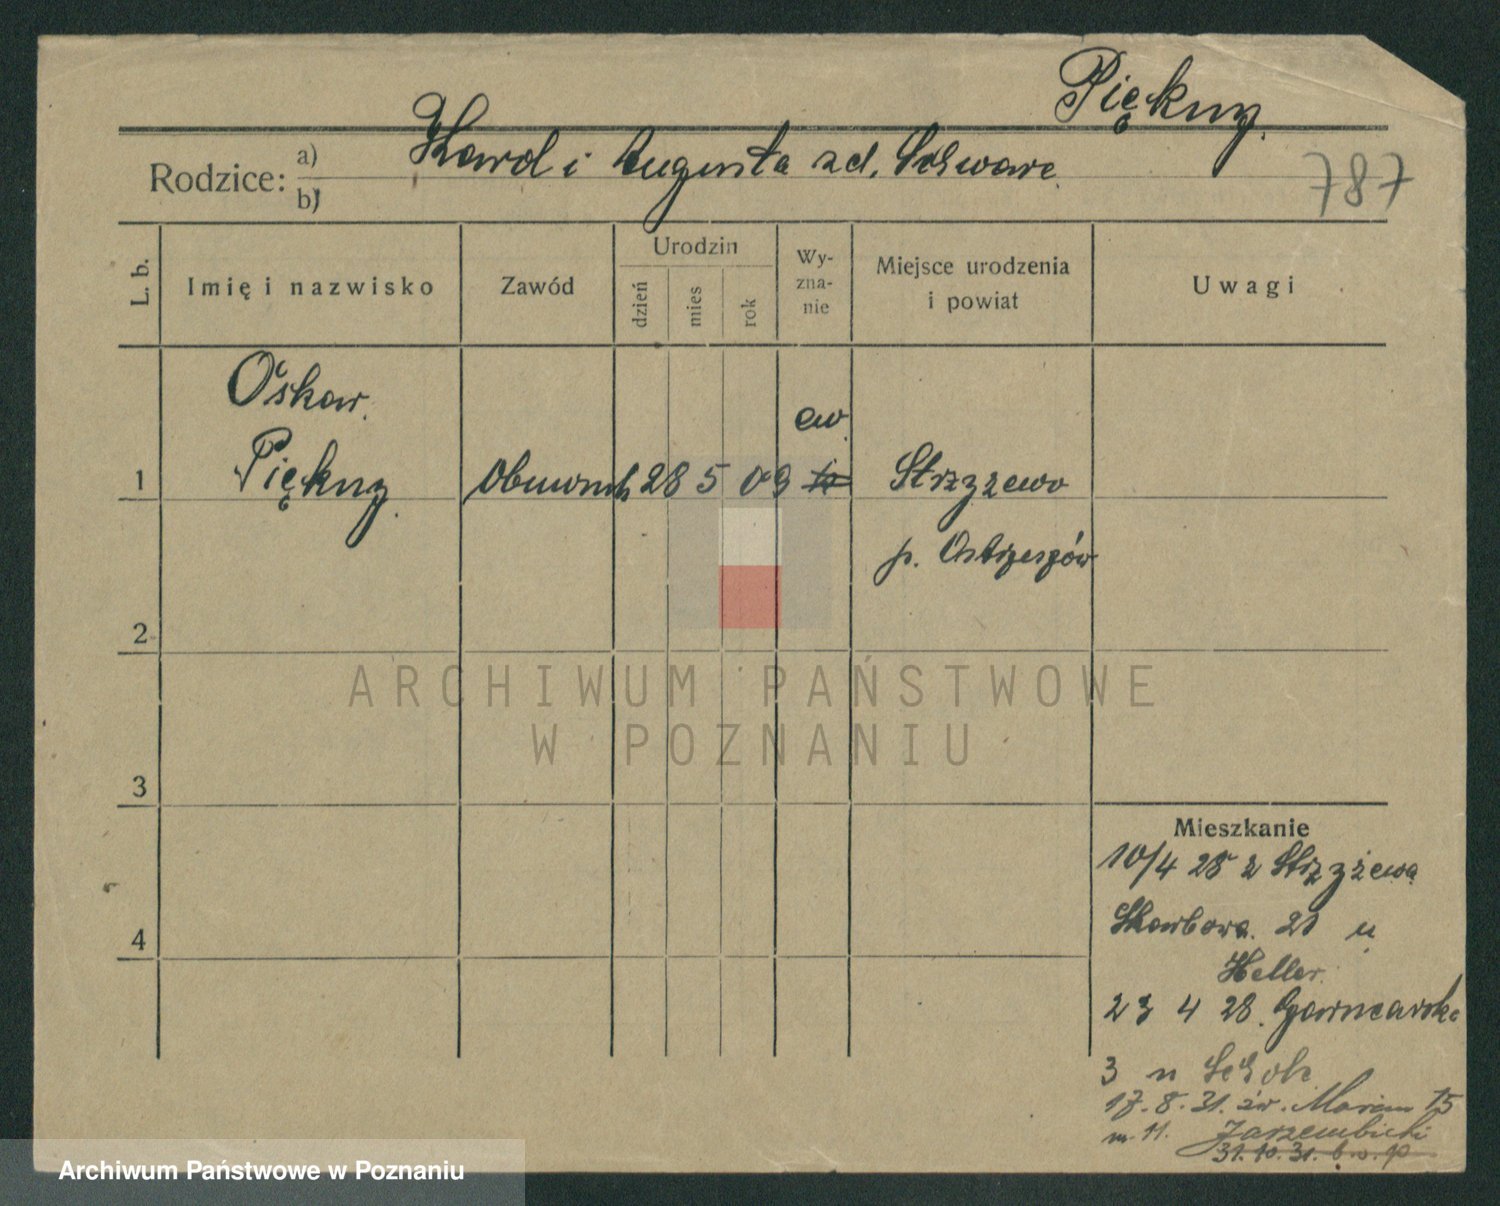 Piękny.
Rodzice: a) b) Karol i Augusta zd. Schwarc
787
L. b.
Imię i nazwisko
Zawód
Urodzin
dzień
mies
rok
Wy-
zna-
nie
Miejsce urodzenia
i powiat
Uwagi
Oskar.
ew.
1 Piękny. Obuwnik 28 5 09 Strzyżewo
p. Ostrzeszów
2
3
4
ARCHIWUM PAŃSTWOWE
W POZNANIU
Mieszkanie
10/4 28 z Strzyżewa
Skarbowa. 21 u
Heller.
23 4 28. Garncarska
3 u Scholz
17.8.31. św. Marcin 15
m. 11. Jarzembicki
31.10.31.
Archiwum Państwowe w Poznaniu